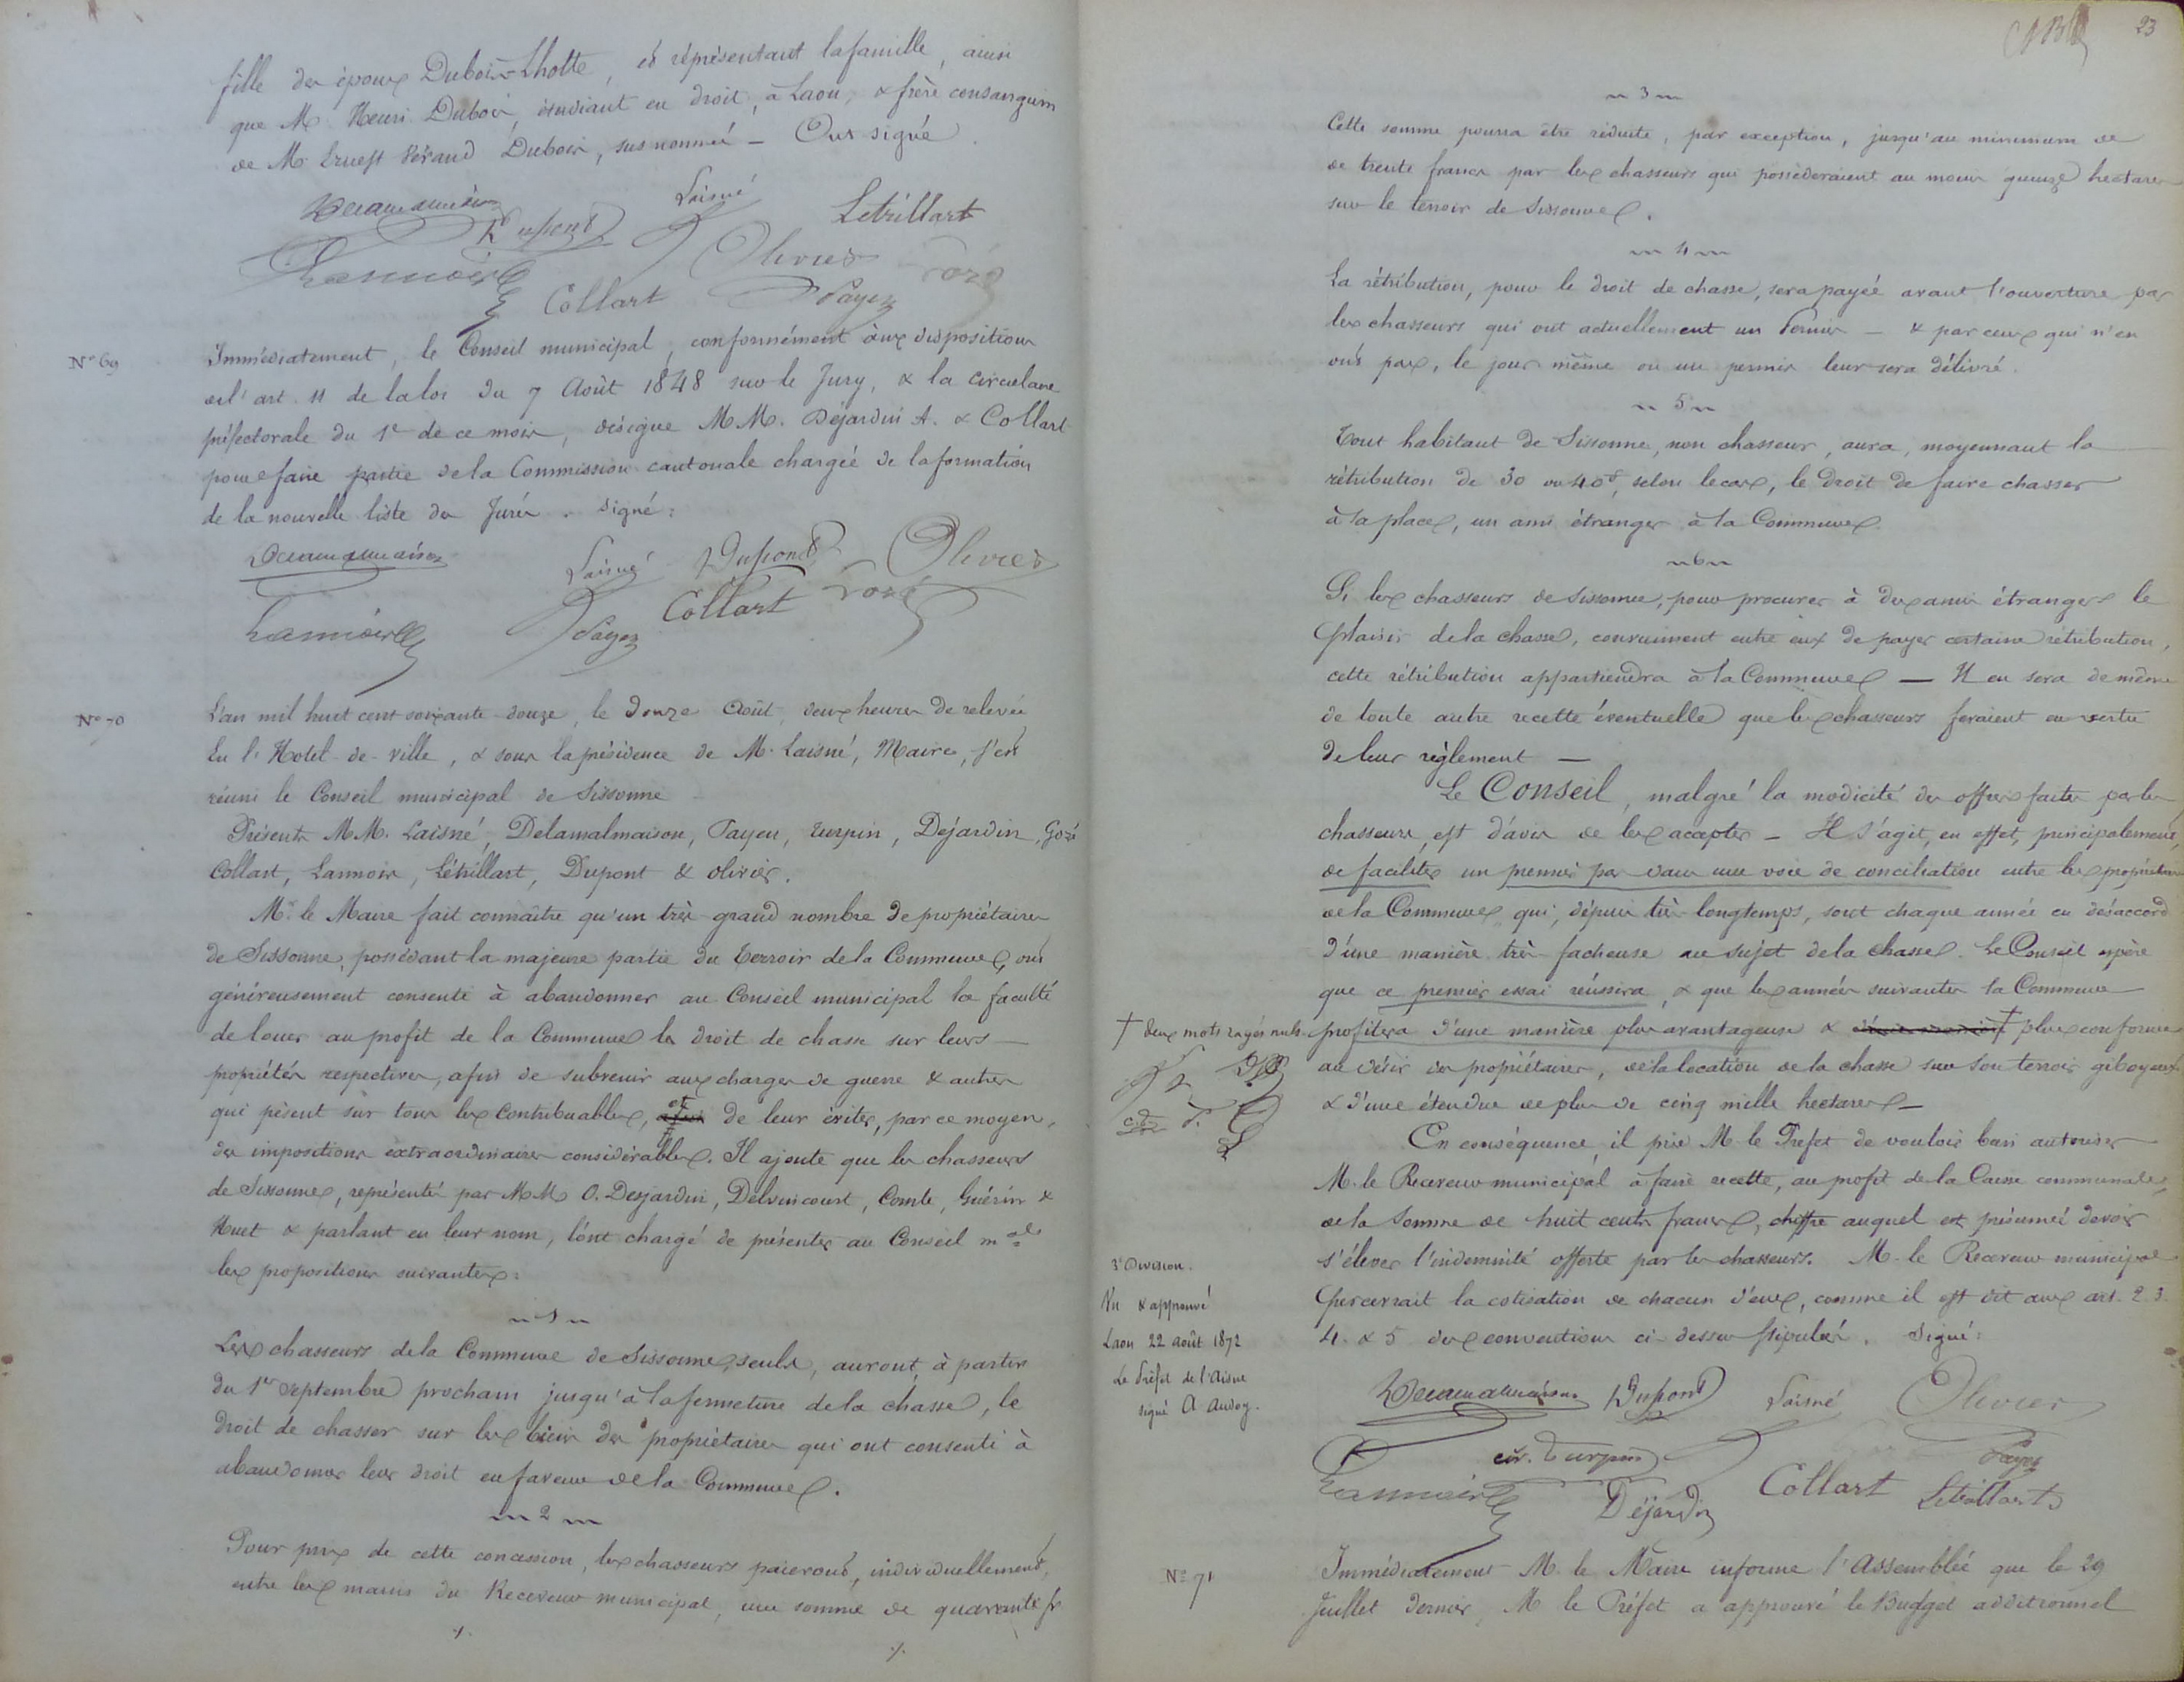 fille des époux Dubois-Lhotte, et représentant la famille, ainsi
que M. Henri Dubois, étudiant en droit, à Laon, & frère consanguin
de M. Ernest Dubois, susnommé — Ont signé
Delamalmaison
Laisné
Dupont
Letrillart
Lannois
Olivier
Gozé
Collart
Payen
N° 69
Immédiatement, le Conseil municipal, conformément aux dispositions
de l'art. 11 de la loi du 7 Août 1848 sur le Jury, & la circulaire
préfectorale du 1er de ce mois, désigne MM. Déjardin A. & Collart
pour faire partie de la Commission cantonale chargée de la formation
de la nouvelle liste des Jurés. Signé:
Delamalmaison
Laisné
Dupont
Olivier
Lannois
Payen
Collart
Gozé
N° 70
L'an mil huit cent soixante-douze, le douze Août, deux heures de relevée
En l'Hotel-de-ville, & sous la présidence de M. Laisné, Maire, s'est
réuni le Conseil municipal de Sissonne —
Présents MM. Laisné, Delamalmaison, Payen, Turpin, Dejardin, Gozé
Collart, Lannois, Létrillart, Dupont & Olivier.
M. le Maire fait connaître qu'un très-grand nombre de propriétaires
de Sissonne, possédant la majeure partie du terroir de la Commune, ont
généreusement consenti à abandonner au Conseil municipal la faculté
de louer au profit de la Commune le droit de chasse sur leurs —
propriétés respectives, afin de subvenir aux charges de guerre & autres
qui pèsent sur tous les Contribuables, afin et de leur éviter, par ce moyen,
des impositions extraordinaires considérables. Il ajoute que les chasseurs
de Sissonne, représentés par MM. O. Desjardin, Delvincourt, Comte, Guérin &
Huet & parlant en leur nom, l'ont chargé de présenter au Conseil mal
les propositions suivantes:
1
Les chasseurs de la Commune de Sissonne, seuls, auront, à partir
du 1er Septembre prochain jusqu'à la fermeture de la chasse, le
droit de chasser sur les biens des propriétaires qui ont consenti à
abandonner leur droit en faveur de la Commune.
2
Pour prix de cette concession, les chasseurs paieront, individuellement,
entre les mains du Receveur municipal, une somme de quarante fr
./.
./.
23
3
Cette somme pourra être réduite, par exception, jusqu'au minimum de
de trente francs par les chasseurs qui possèderaient au moins quinze hectares
sur le terroir de Sissonne.
4
La rétribution, pour le droit de chasse, sera payée avant l'ouverture par
les chasseurs qui ont actuellement un Permis — & par ceux qui n'en
ont pas, le jour même où un permis leur sera délivré.
5
Tout habitant de Sissonne, non chasseur, aura, moyennant la
rétribution de 30 ou 40f, selon le cas, le droit de faire chasser
à sa place, un ami étranger à la Commune.
6
Si les chasseurs de Sissonne, pour procurer à des amis étrangers le
plaisir de la chasse, conviennent entre eux de payer certaine rétribution,
cette rétribution appartiendra à la Commune — Il en sera de même
de toute autre recette éventuelle que les chasseurs feraient en vertu
de leur règlement —
Le Conseil, malgré la modicité des offres faites par les
chasseurs, est d'avis de les accepter — Il s'agit, en effet, principalement,
de faciliter un premier pas dans une voie de conciliation entre les propriétaires
de la Commune, qui, dépuis très-longtemps, sont chaque année en désaccord
d'une manière très-facheuse au sujet de la chasse. Le Conseil espère
que ce premier essai réussira, & que les années suivantes la Commune
† deux mots rayés nuls.
profitera d'une manière plus avantageuse & d'une manière † plus conforme
au désir des propriétaires, de la location de la chasse sur son terroir giboyeux
& d'une étendue de plus de cinq mille hectares —
En conséquence, il prie M. le Préfet de vouloir bien autoriser
M. le Receveur municipal à faire recette, au profit de la Caisse communale,
de la somme de huit cents francs, chiffre auquel est présumée devoir
s'élever l'indemnité offerte par les chasseurs. M. le Receveur municipal
percevrait la cotisation de chacun d'eux, comme il est dit aux art. 2. 3.
4. & 5 des conventions ci-dessus stipulées. Signé:
3e Division.
Vu & approuvé
Laon 22 août 1872
Le Préfet de l'Aisne
signé A
Delamalmaison
Dupont
Laisné
Olivier
Turpin
Payen
Lannois
Déjardin
Collart
Letrillart
N° 71
Immédiatement M. le Maire informe l'Assemblée que le 29
Juillet dernier, M. le Préfet a approuvé le Budget additionnel